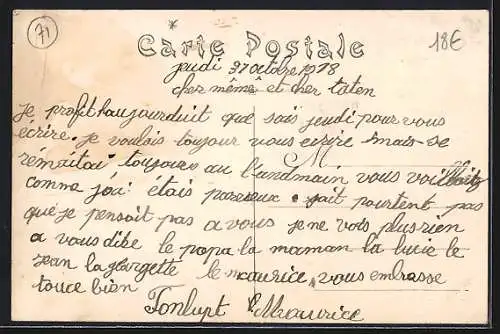 71
18€
Carte Postale
jeudi 31 octobre 1918
cher mémé et cher taten
je profit haujourduit que sais jeudi pour vous
écrire. je voulais toujour vous ecrire mais se
rémaitai toujours au landmain vous
comme j'ai étais paresseux sait pourtent pas
que je pensait pas a vous je ne vois plus rien
a vous dibe le papa la maman la lucie le
jean la georgette le maurice vous embrasse
touce bien
Fonlupt Maurice